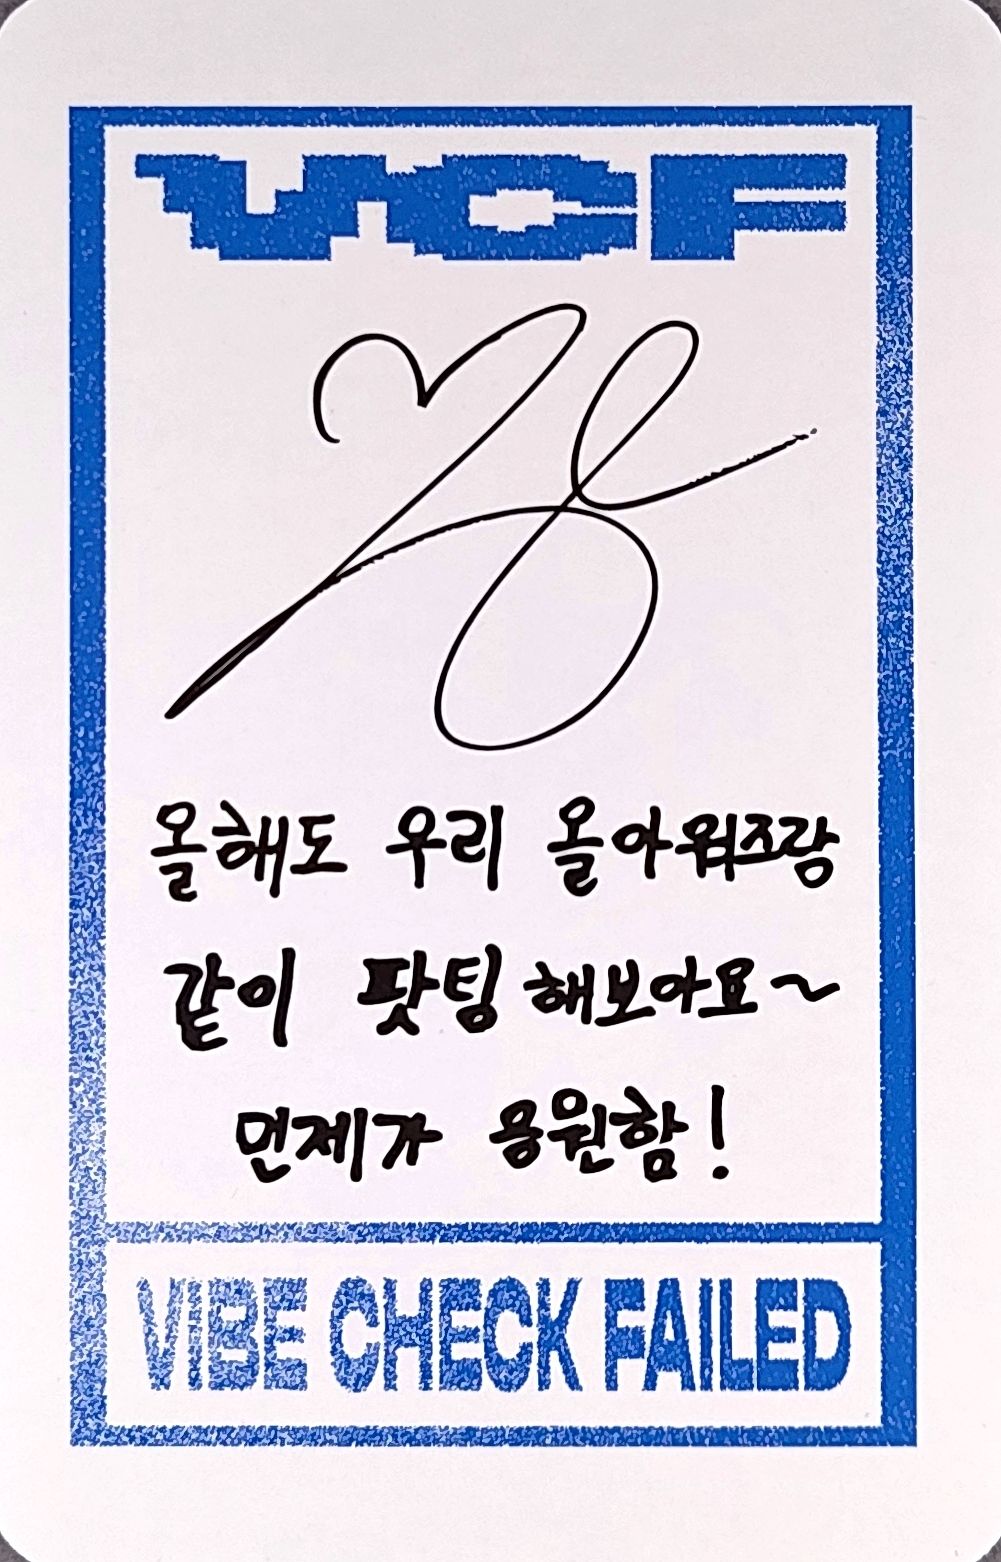 VCF
올해도 우리 올아워즈랑
같이 팟팅 해보아요~
먼제가 응원함!
VIBE CHECK FAILED